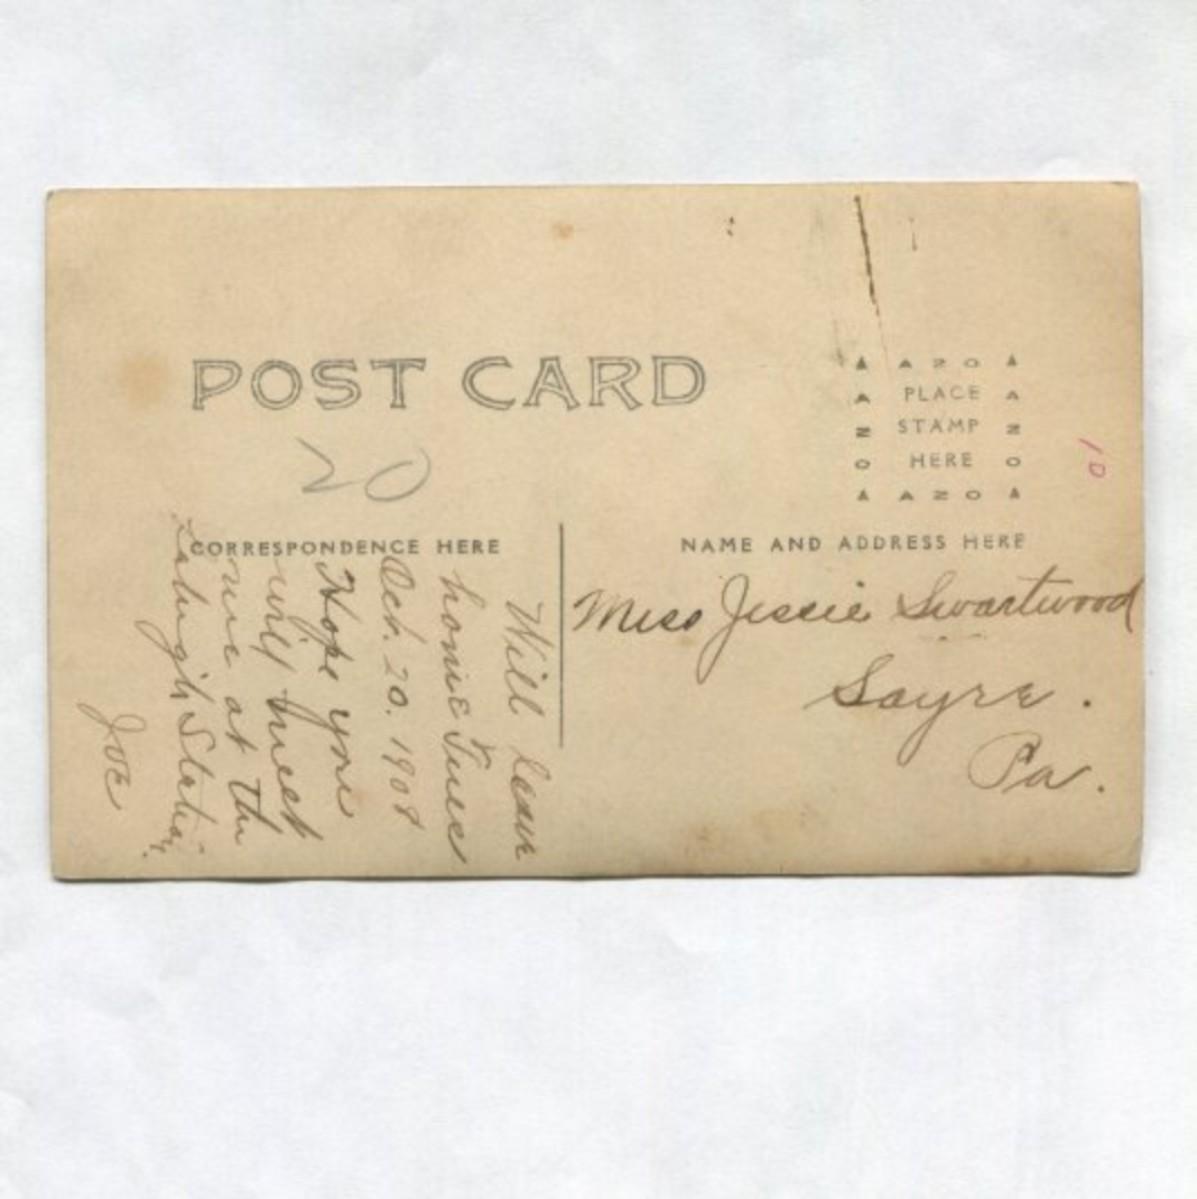 POST CARD
20
▲ A Z O ▲
A PLACE A
Z STAMP Z
O HERE O
▲ A Z O ▲
10
CORRESPONDENCE HERE
NAME AND ADDRESS HERE
Will leave
home Tues
Oct. 20. 1908
Hope you
will meet
me at the
Lehigh Station.
Joe
Miss Jessie Swartwood
Sayre.
Pa.